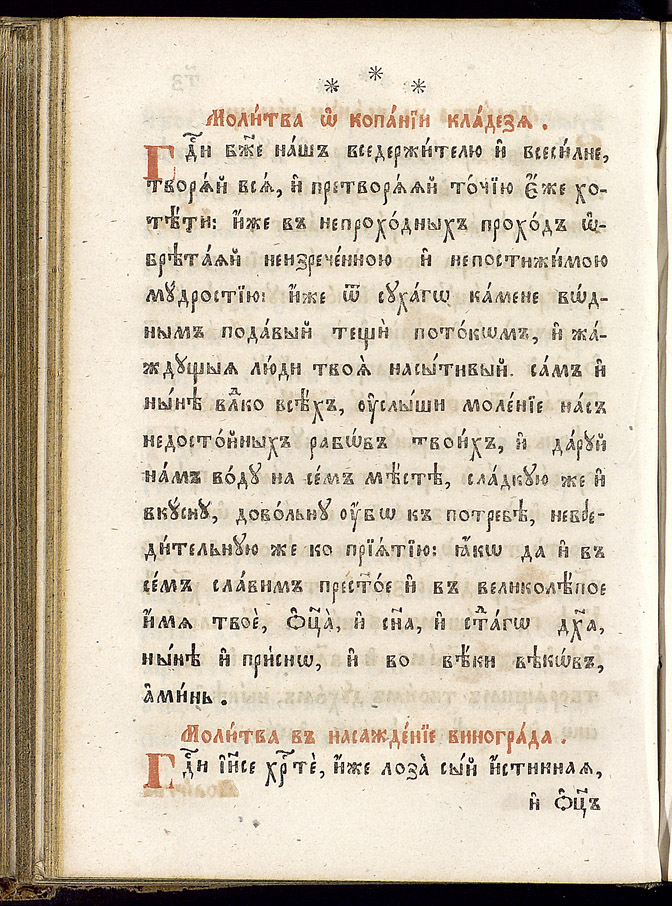 * * *
Моли́тва ѡ҆ копа́нїи кла́дезѧ .
Гдⷭ҇и бж҃е на́шъ вседержи́телю и҆ всеси́лне,
творѧ́й всѧ̑, и҆ претворѧ́ѧй то́чїю є҆́же хо-
тѣ́ти: и҆́же въ непрохо́дныхъ прохо́дъ ѡ҆-
брѣта́ѧй неизрече́нною и҆ непостижи́мою
мꙋ́дростїю: и҆́же ѿ сꙋха́гѡ ка́мене вѡ́д-
нымъ пода́вый тещѝ пото́кѡмъ, и҆ жа́-
ждꙋщыѧ лю́ди твоѧ̑ насы́тивый. са́мъ и҆
ны́нѣ влⷣко всѣ́хъ, ᲂу҆слы́ши моле́нїе на́съ
недосто́йныхъ рабѡ́въ твои́хъ, и҆ да́рꙋй
на́мъ во́дꙋ на се́мъ мѣ́стѣ, сла́дкꙋю же и҆
вкꙋ́снꙋ, дово́льнꙋ ᲂу҆́бѡ къ потре́бѣ, невре-
ди́тельнꙋю же ко прїѧ́тїю: ꙗ҆́кѡ да и҆ въ
се́мъ сла́вимъ прест҃о́е и҆ въ великолѣ́пое
и҆́мѧ твоѐ, ѻ҆ц҃а̀, и҆ сн҃а, и҆ ст҃а́гѡ дх҃а,
ны́нѣ и҆ при́снѡ, и҆ во вѣ́ки вѣкѡ́въ,
а҆ми́нь .
Моли́тва въ насажде́нїе виногра́да .
Гдⷭ҇и і҆и҃се хрⷭ҇тѐ, и҆́же лоза̀ сы́й и҆́стиннаѧ,
и҆ ѻ҆ц҃ъ